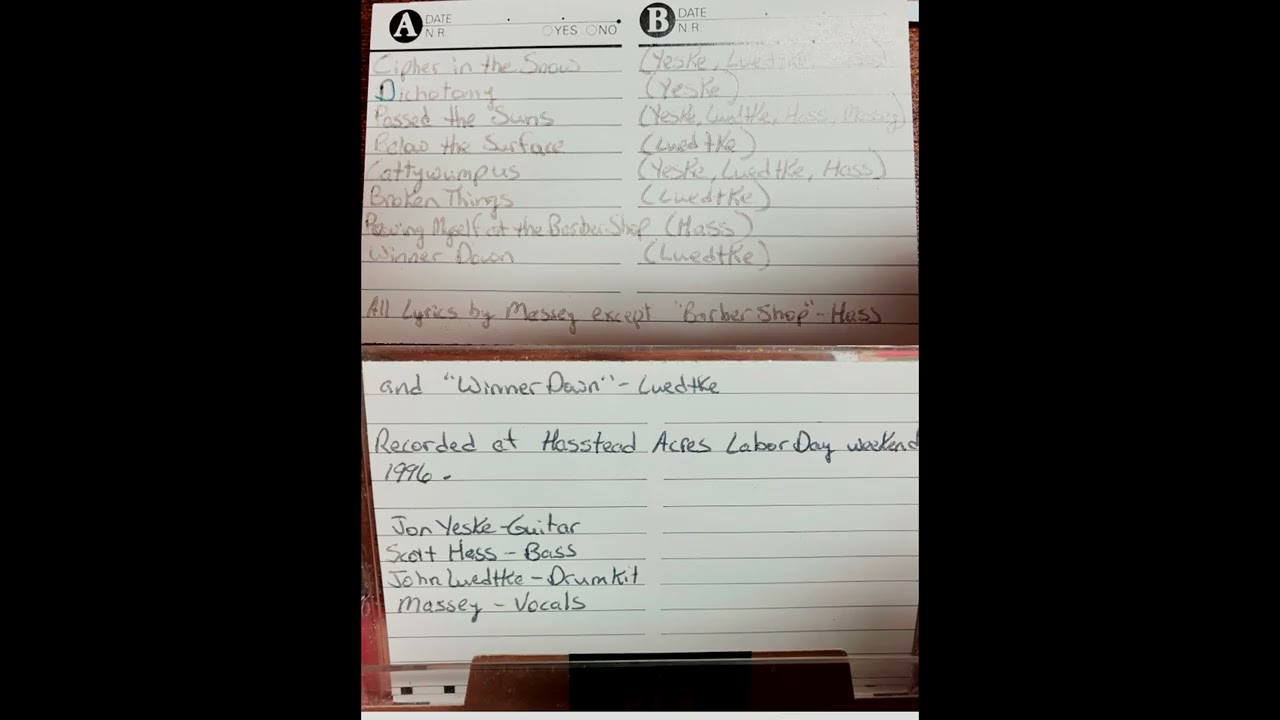 A DATE
N.R. YES NO
B DATE
N.R.
Cipher in the Snow (Yeske, Luedtke,
Dichotomy (Yeske)
Passed the Suns (Yeske, Luedtke, Hass, Massey)
Below the Surface (Luedtke)
Cattywumpus (Yeske, Luedtke, Hass)
Broken Things (Luedtke)
Myself at the Barber Shop (Hass)
Winner Down (Luedtke)
All Lyrics by Massey except "Barber Shop" - Hass
and "Winner Down" - Luedtke
Recorded at Hasstead Acres Labor Day weekend
1996.
Jon Yeske - Guitar
Scott Hass - Bass
John Luedtke - Drumkit
Massey - Vocals